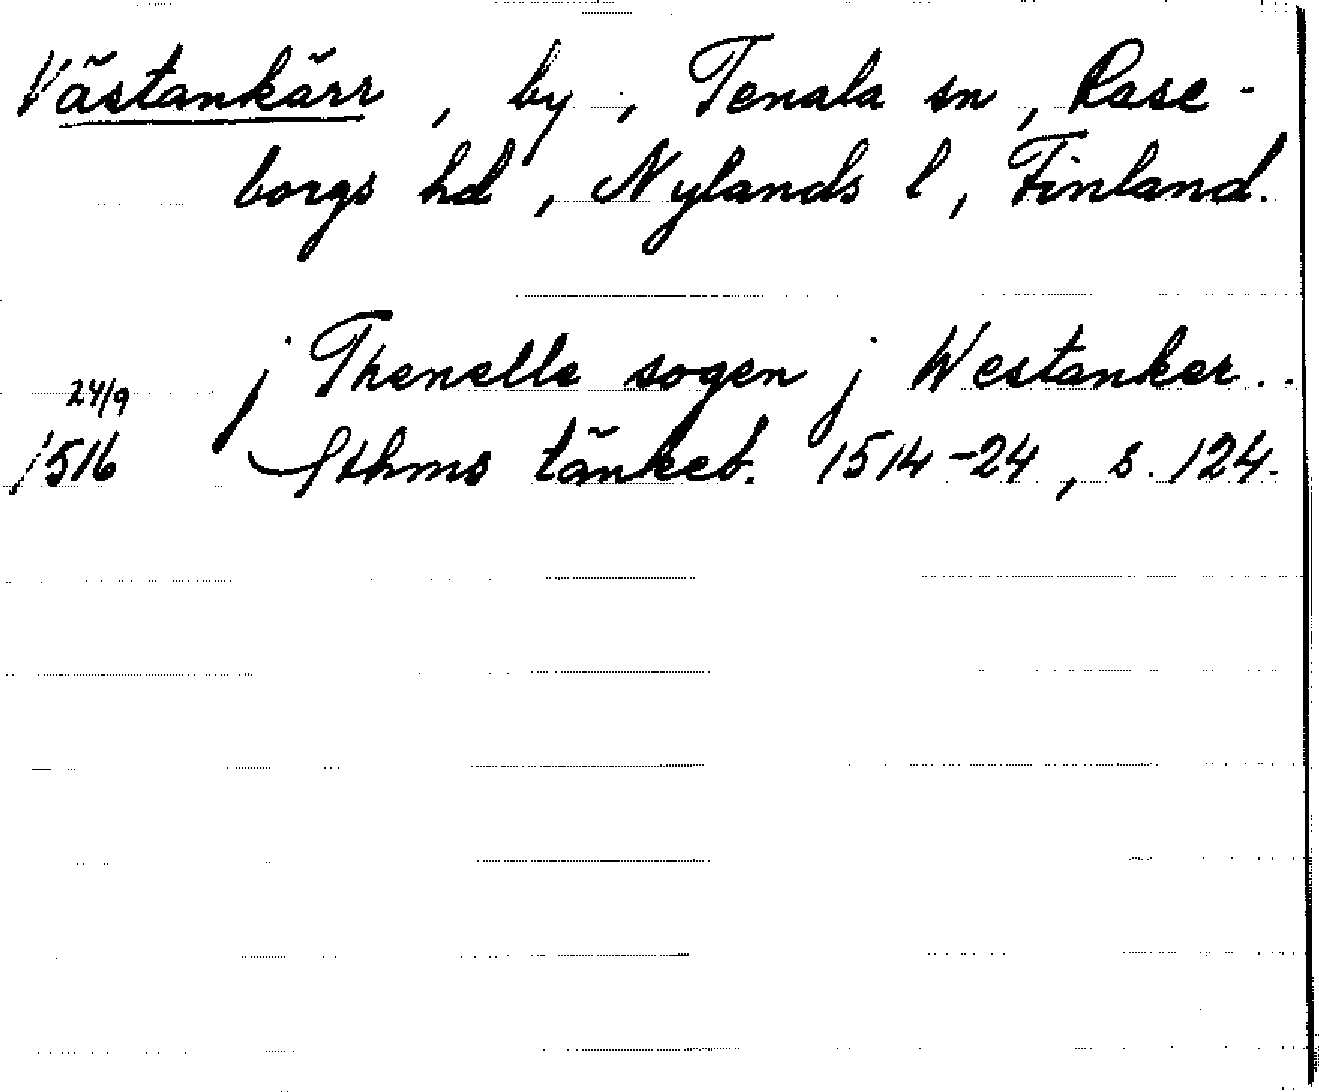 Västankärr, by, Tenala sn, Rase-
borgs hd, Nylands l, Finland.
24/9 j Thenella sogen j Westanker..
1516 Sthms tänkeb. 1514-24, s. 124.